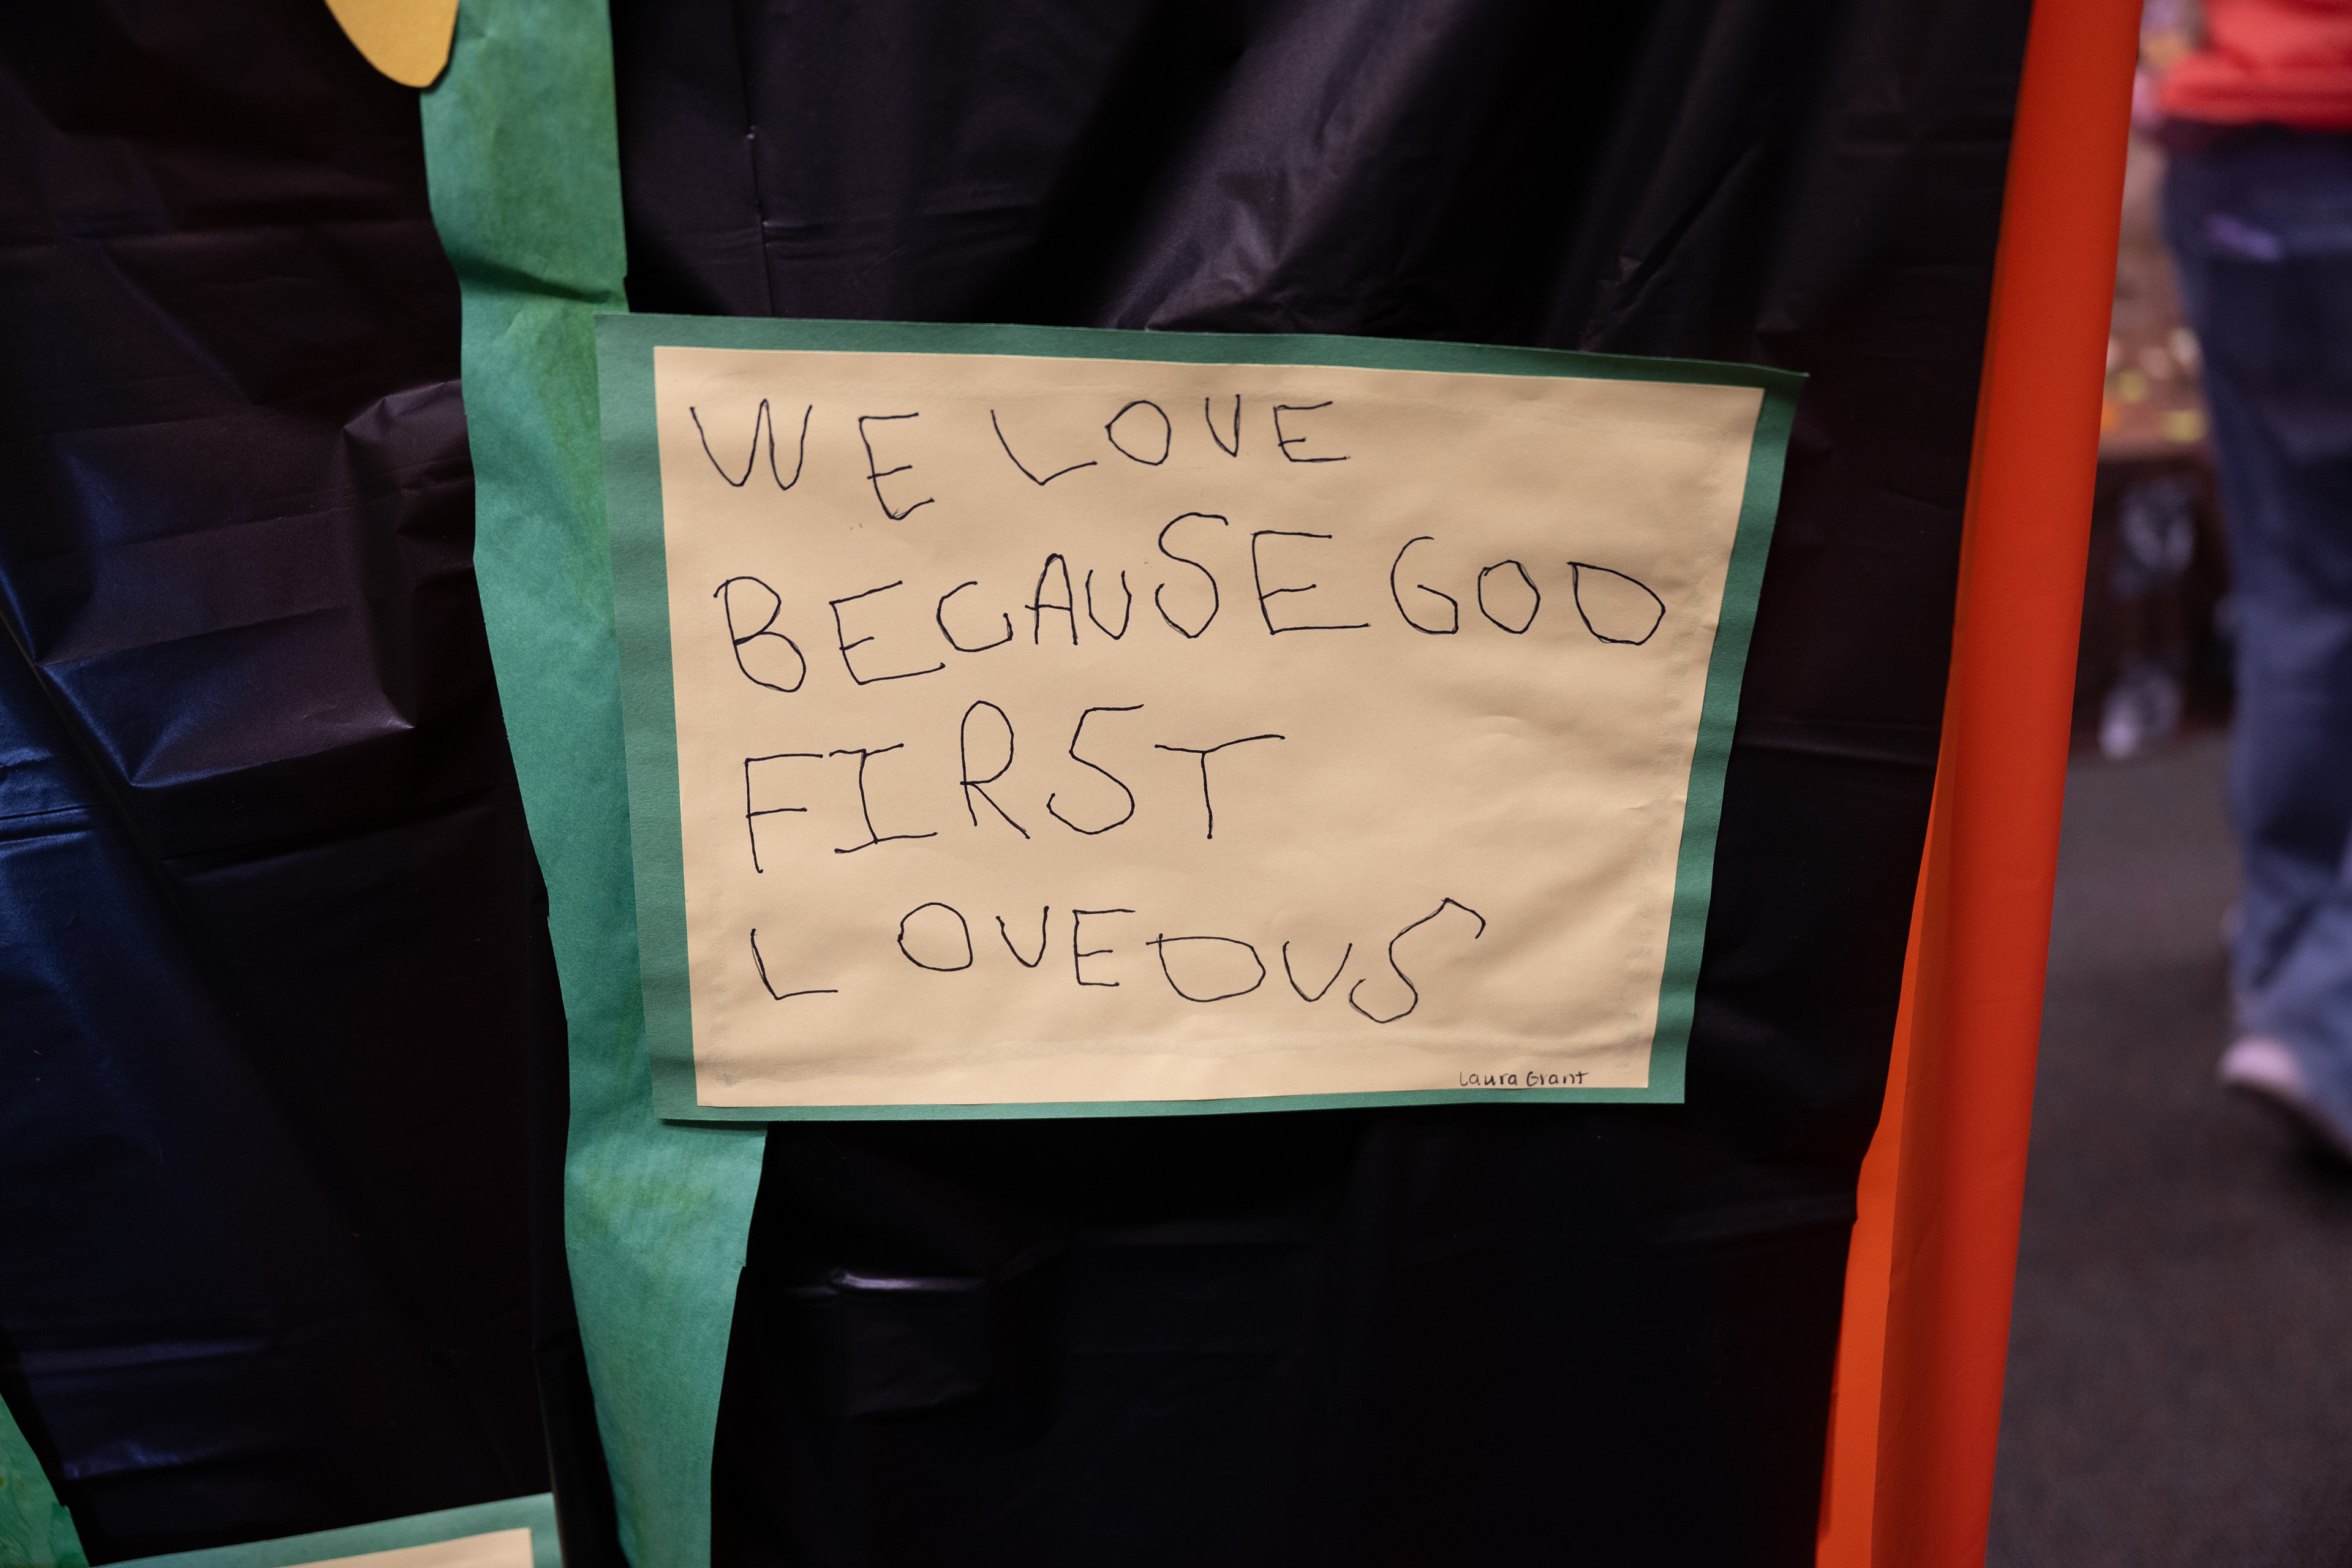 WE LOVE
BECAUSE GOD
FIRST
LOVED US
Laura Grant